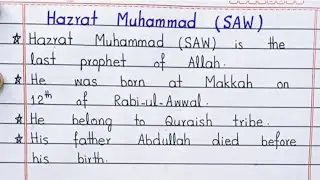 Hazrat Muhammad (SAW)
☆ Hazrat Muhammad (SAW) is the
last prophet of Allah.
☆ He was born at Makkah on
12th of Rabi-ul-Awwal.
☆ He belong to Quraish tribe.
☆ His father Abdullah died before
his birth.